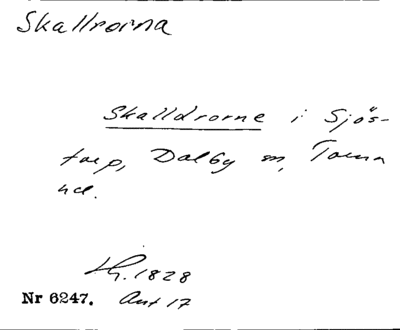 Skallrorna
Skalldrorne i Sjös-
torp, Dalby sn, Torna
hd.
Lh. 1828
Nr 6247. Ant 17